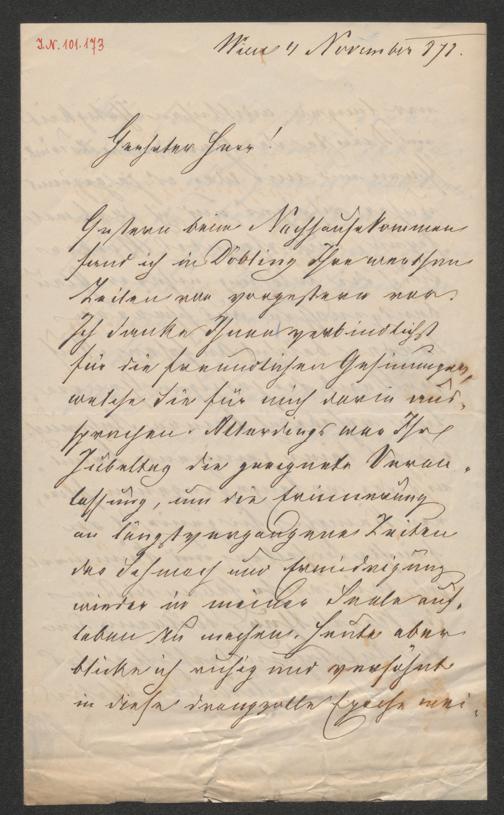 I.N. 101.173
Wien 4 November 872.
Geehrter Herr!
Gestern beim Nachhausekommen
fand ich in Döbling Ihre werthen
Zeilen von vorgestern vor.
Ich danke Ihnen verbindlichst
für die freundlichen Gesinnungen,
welche Sie für mich darin aus-
sprachen. Allerdings war Ihr
Jubeltag die geeignete Veran-
lassung, um die Erinnerung
an längstvergangene Zeiten
der Schmach und Erniedrigung
wieder in meiner Seele auf-
leben zu machen. Heute aber
blicke ich ruhig und versöhnt
in diese drangvolle Epoche mei-